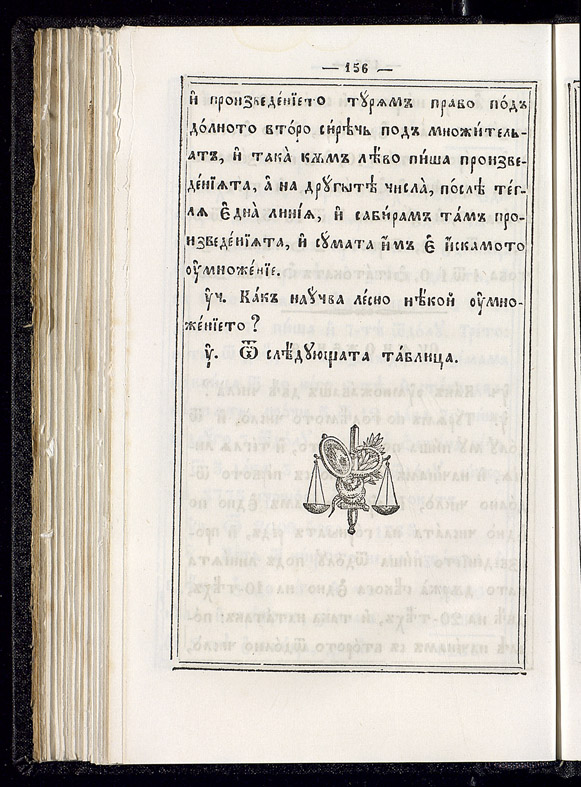 — 156 —
и҆ произведе́нїето тꙋ́рямъ право по́дъ
до́лното вто́ро си́рѣчь подъ множи́тель-
атъ, и҆ така̀ къмъ лѣ́во пи́ша произве-
де́нїята, а҆ на дрꙋ́гытѣ числа̀, по́слѣ те́г-
ля є҆дна̀ линїя, и҆ сабирамъ та́мъ про-
изведе́нїята, и҆ сꙋмата и҆́мъ є҆̀ и҆́скамото
ᲂу҆множе́нїе.
ᲂу҆ч. Ка́къ наꙋчва ле́сно нѣ́кой ᲂу҆мно-
же́нїето?
ᲂу҆. Ѿ слѣ́дꙋющата та́блица.